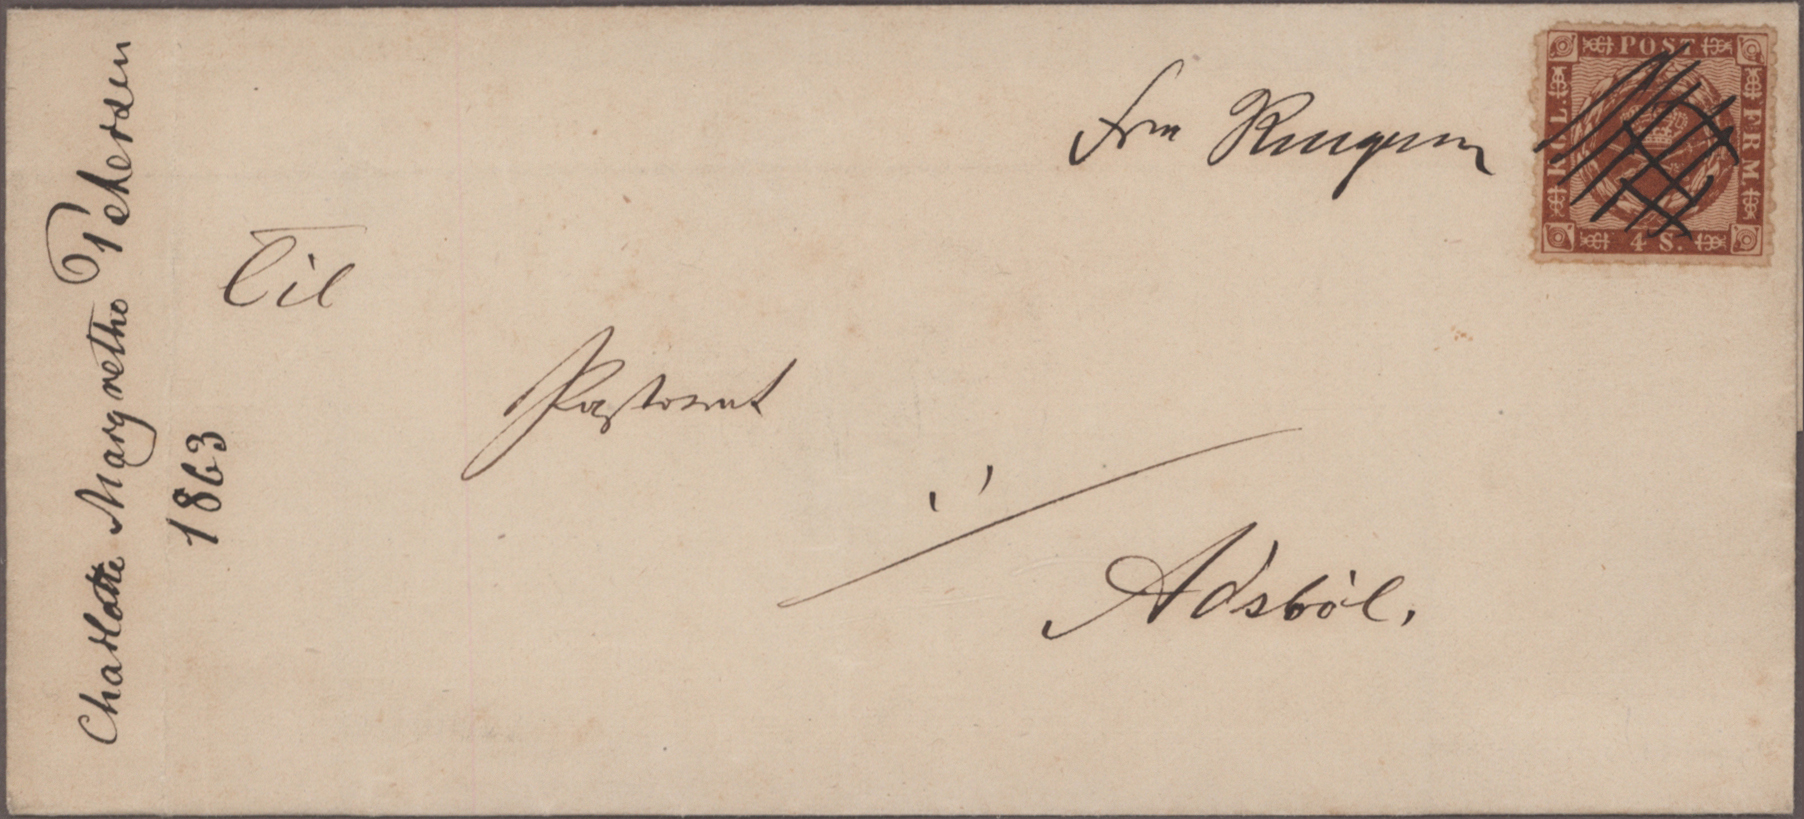 Charlotte Margrethe Petersen
1863
Til
Pastorat
i
Adsböl.
Fra
POST
FRM.
4 S.
KGL.